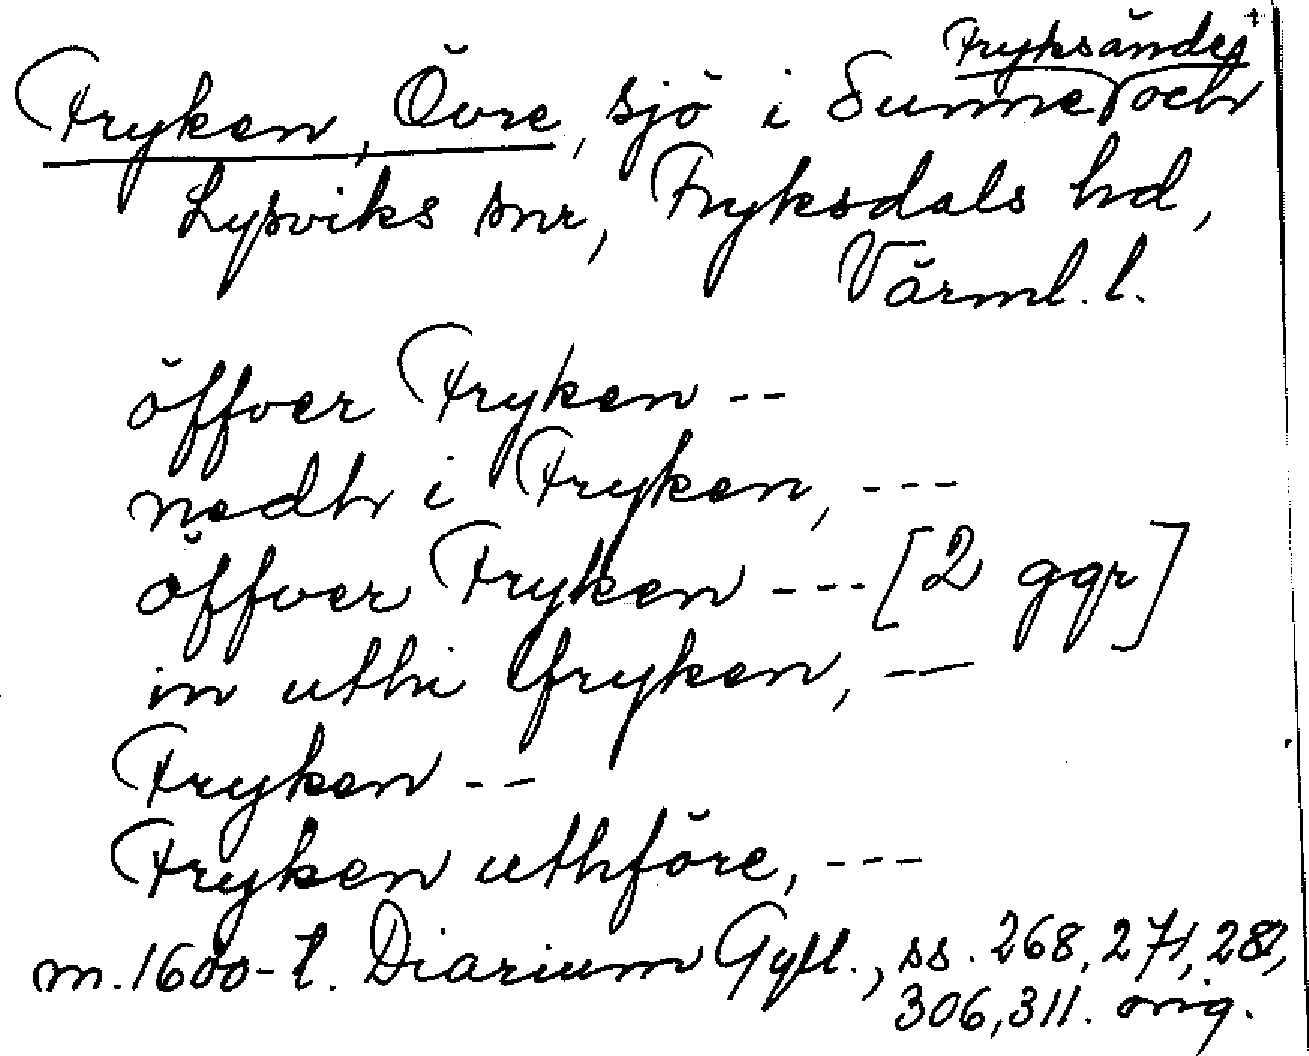 Fryksände,
Fryken, Övre, sjö i Sunne och
Lysviks snr, Fryksdals hd,
Värml. l.
öffver Fryken --
nedh i Fryken, ---
öffver Fryken --- [2 ggr]
in uthi ffryken, —
Fryken --
Fryken uthföre, ---
m. 1600-t. Diarium Gyll., ss. 268, 271, 282,
306, 311. orig.